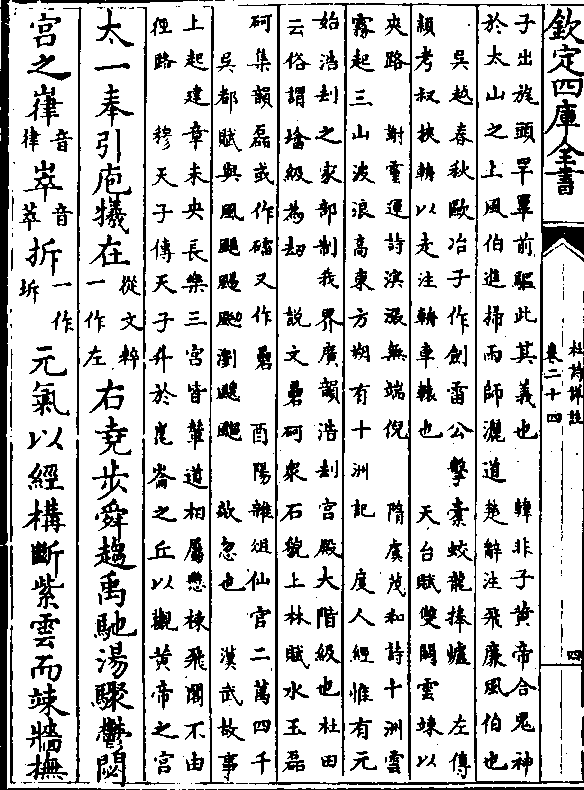 欽定四庫全書
杜詩詳註
卷二十四
四
子出旄頭罕罼前驅此其義也　韓非子黃帝合鬼神
於太山之上風伯進掃雨師灑道楚辭注飛廉風伯也
吳越春秋歐冶子作劍雷公擊橐蛟龍捧爐　左傳
頴考叔挾輈以走注輈車轅也　天台賦雙闕雲竦以
夾路　謝靈運詩溟漲無端倪　隋虞茂和詩十洲雲
霧起三山波浪高東方朔有十洲記　度人經惟有元
始浩刼之家部制我界廣韻浩刼宮殿大階級也杜田
云俗謂塔級為刼　說文磊砢衆石貌上林賦水玉磊
砢集韻磊或作礧又作礨　酉陽雜俎仙宫二萬四千
吳都賦與風飖颺瀏飀　欻忽也　漢武故事
上起建章未央長樂三宫皆輦道相屬懸棟飛閣不由
徑路　穆天子傳天子升於崑崙之丘以觀黃帝之宮
太一奉引庖犧在從文粹一作左右堯步舜趨禹馳湯驟鬱閟
宮之嵂音律崒音萃拆一作坼元氣以經構斷紫雲而竦牆撫